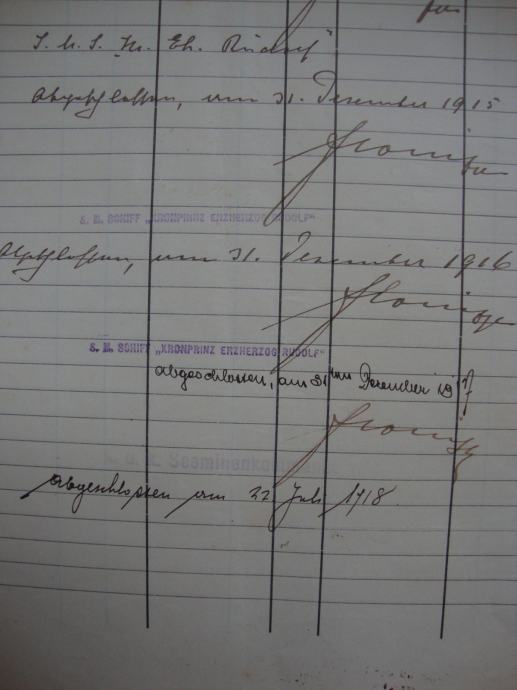 für
S. M. S. Kr. Eh. Rudolf"
Abgeschlossen, am 31. Dezember 1915
S. M. SCHIFF „KRONPRINZ ERZHERZOG RUDOLF"
Abgeschlossen, am 31. Dezember 1916
S. M. SCHIFF „KRONPRINZ ERZHERZOG RUDOLF"
abgeschlossen, am 31ten Dezember 1917
k. u. k. Seeminenkommando
abgeschlossen am 22 Juli 1918.